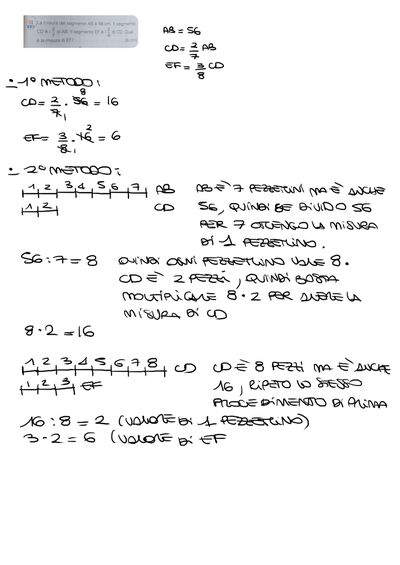 La misura del segmento AB è 56 cm. Il segmento
CD è i 2/7 di AB. Il segmento EF è i 3/8 di CD. Qual
è la misura di EF?
AB = 56
CD = 2/7 AB
EF = 3/8 CD
- 1° METODO:
CD = 2/7 · 56 = 16
8
1
EF = 3/8 · 16 = 6
2
1
- 2° METODO:
1 2 3 4 5 6 7 AB
1 2 CD
AB È 7 PEZZETTINI MA È ANCHE
56, QUINDI SE DIVIDO 56
PER 7 OTTENGO LA MISURA
DI 1 PEZZETTINO.
56 : 7 = 8
QUINDI OGNI PEZZETTINO VALE 8.
CD È 2 PEZZI, QUINDI BASTA
MOLTIPLICARE 8 · 2 PER AVERE LA
MISURA DI CD
8 · 2 = 16
1 2 3 4 5 6 7 8 CD
1 2 3 EF
CD È 8 PEZZI MA È ANCHE
16, RIPETO LO STESSO
PROCEDIMENTO DI PRIMA
16 : 8 = 2 (VALORE DI 1 PEZZETTINO)
3 · 2 = 6 (VALORE DI EF